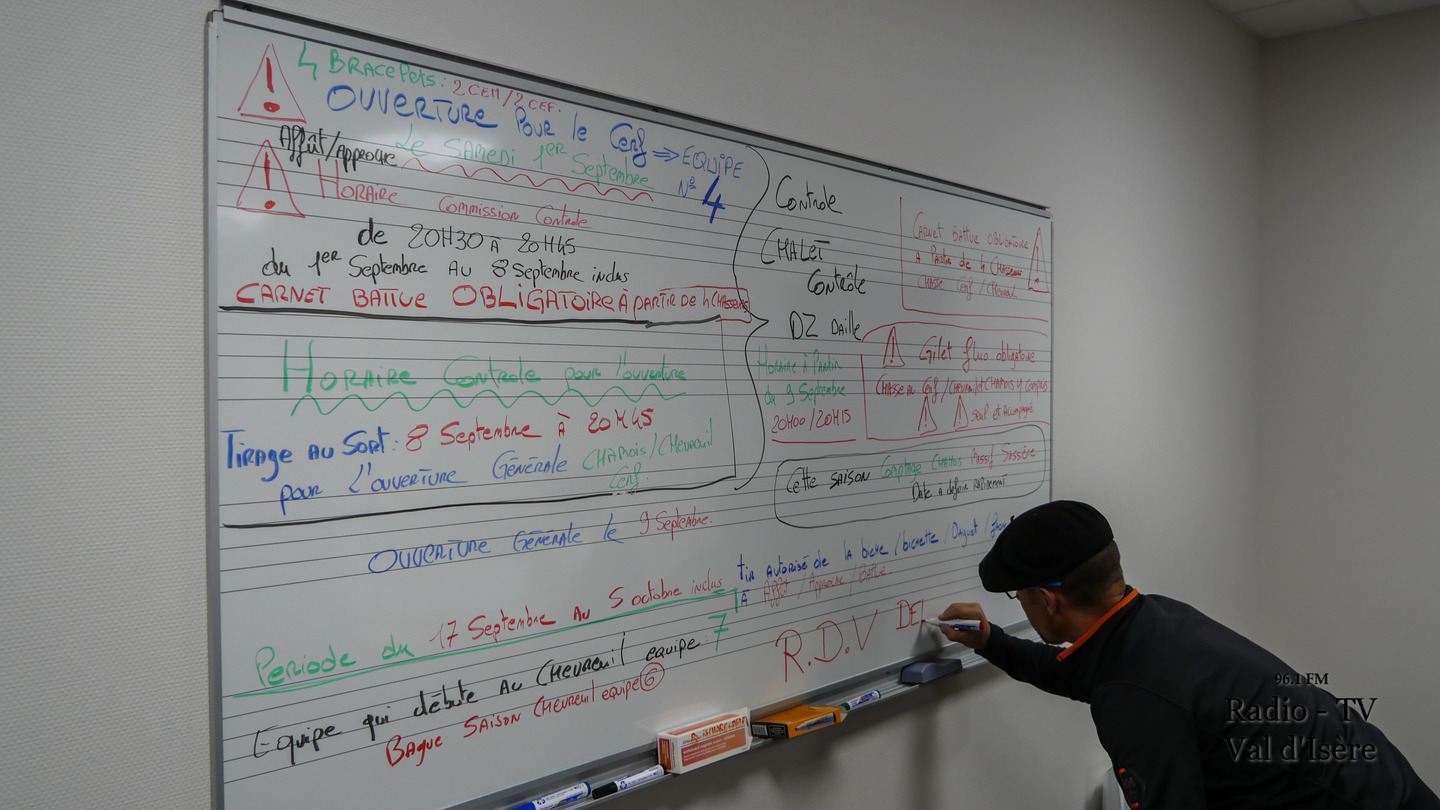 4 BRACEPETS: 2 CEM / 2 CEF.
OUVERTURE POUR le Cerf ⇒ EQUIPE
N° 4
Affût/Approche
Le SAMEDI 1ER Septembre
HORAIRE Commission Controle
de 20H30 À 20H45
du 1ER Septembre AU 8 Septembre inclus
CARNET BATTUE OBLIGATOIRE À PARTIR DE 4 CHASSEURS
HORAIRE Controle pour l'ouverture
TIRAGE AU SORT: 8 Septembre À 20H45
pour l'ouverture GÉNÉRALE CHAMOIS/CHEVREUIL
Cerf.
OUVERTURE GÉNÉRALE le 9 Septembre.
PERIODE du 17 Septembre AU 5 octobre inclus
Equipe qui débute AU CHEVREUIL equipe: 7
BAGUE SAISON CHEVREUIL equipe 6
Controle
CHALET
Contrôle
DZ DAILLE
HORAIRE À PARTIR
du 9 Septembre
20H00 / 20H15
CARNET BATTUE OBLIGATOIRE
A PARTIR de 4 CHASSEURS
CHASSE Cerf / CHEVREUIL
Gilet fluo obligatoire
CHASSE AU Cerf / CHEVREUIL CHAMOIS Y COMPRIS
seul et Accompagné
Cette SAISON Comptage CHAMOIS Massif Sassière
Date à définir RAPIDEMENT
tir AUTORISÉ de LA biche / bichette / DAGUET /
À Affût / Approche / Battue.
R.D.V DE
96.1 FM
Radio - TV
Val d'Isère